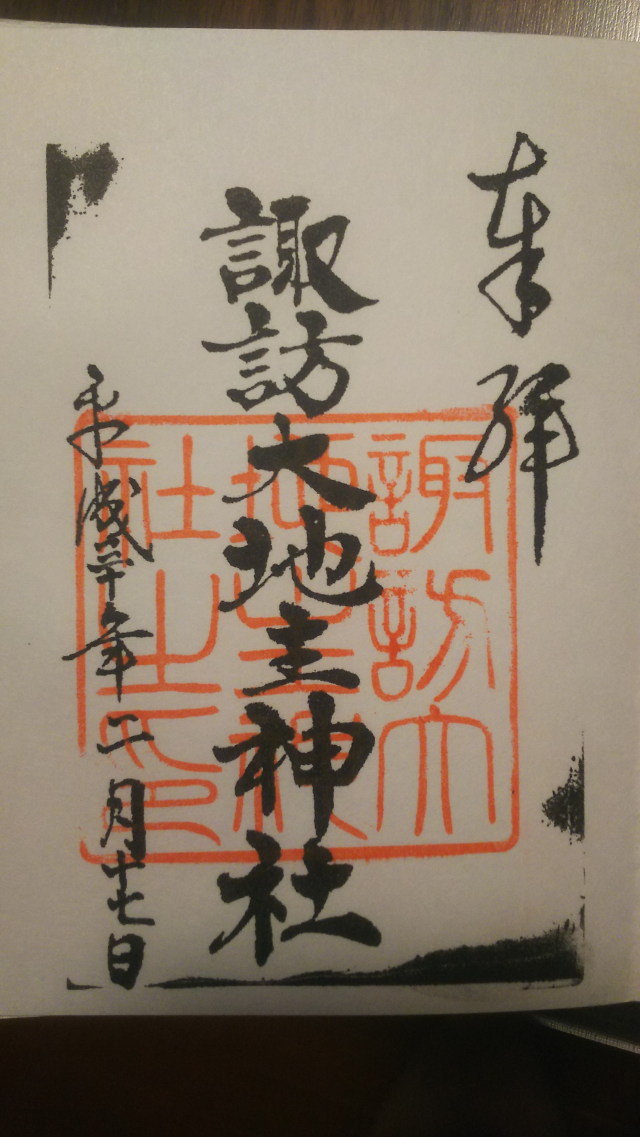 奉拝
諏訪大地主神社
諏訪大
地主神
社之印
平成三十年二月十七日